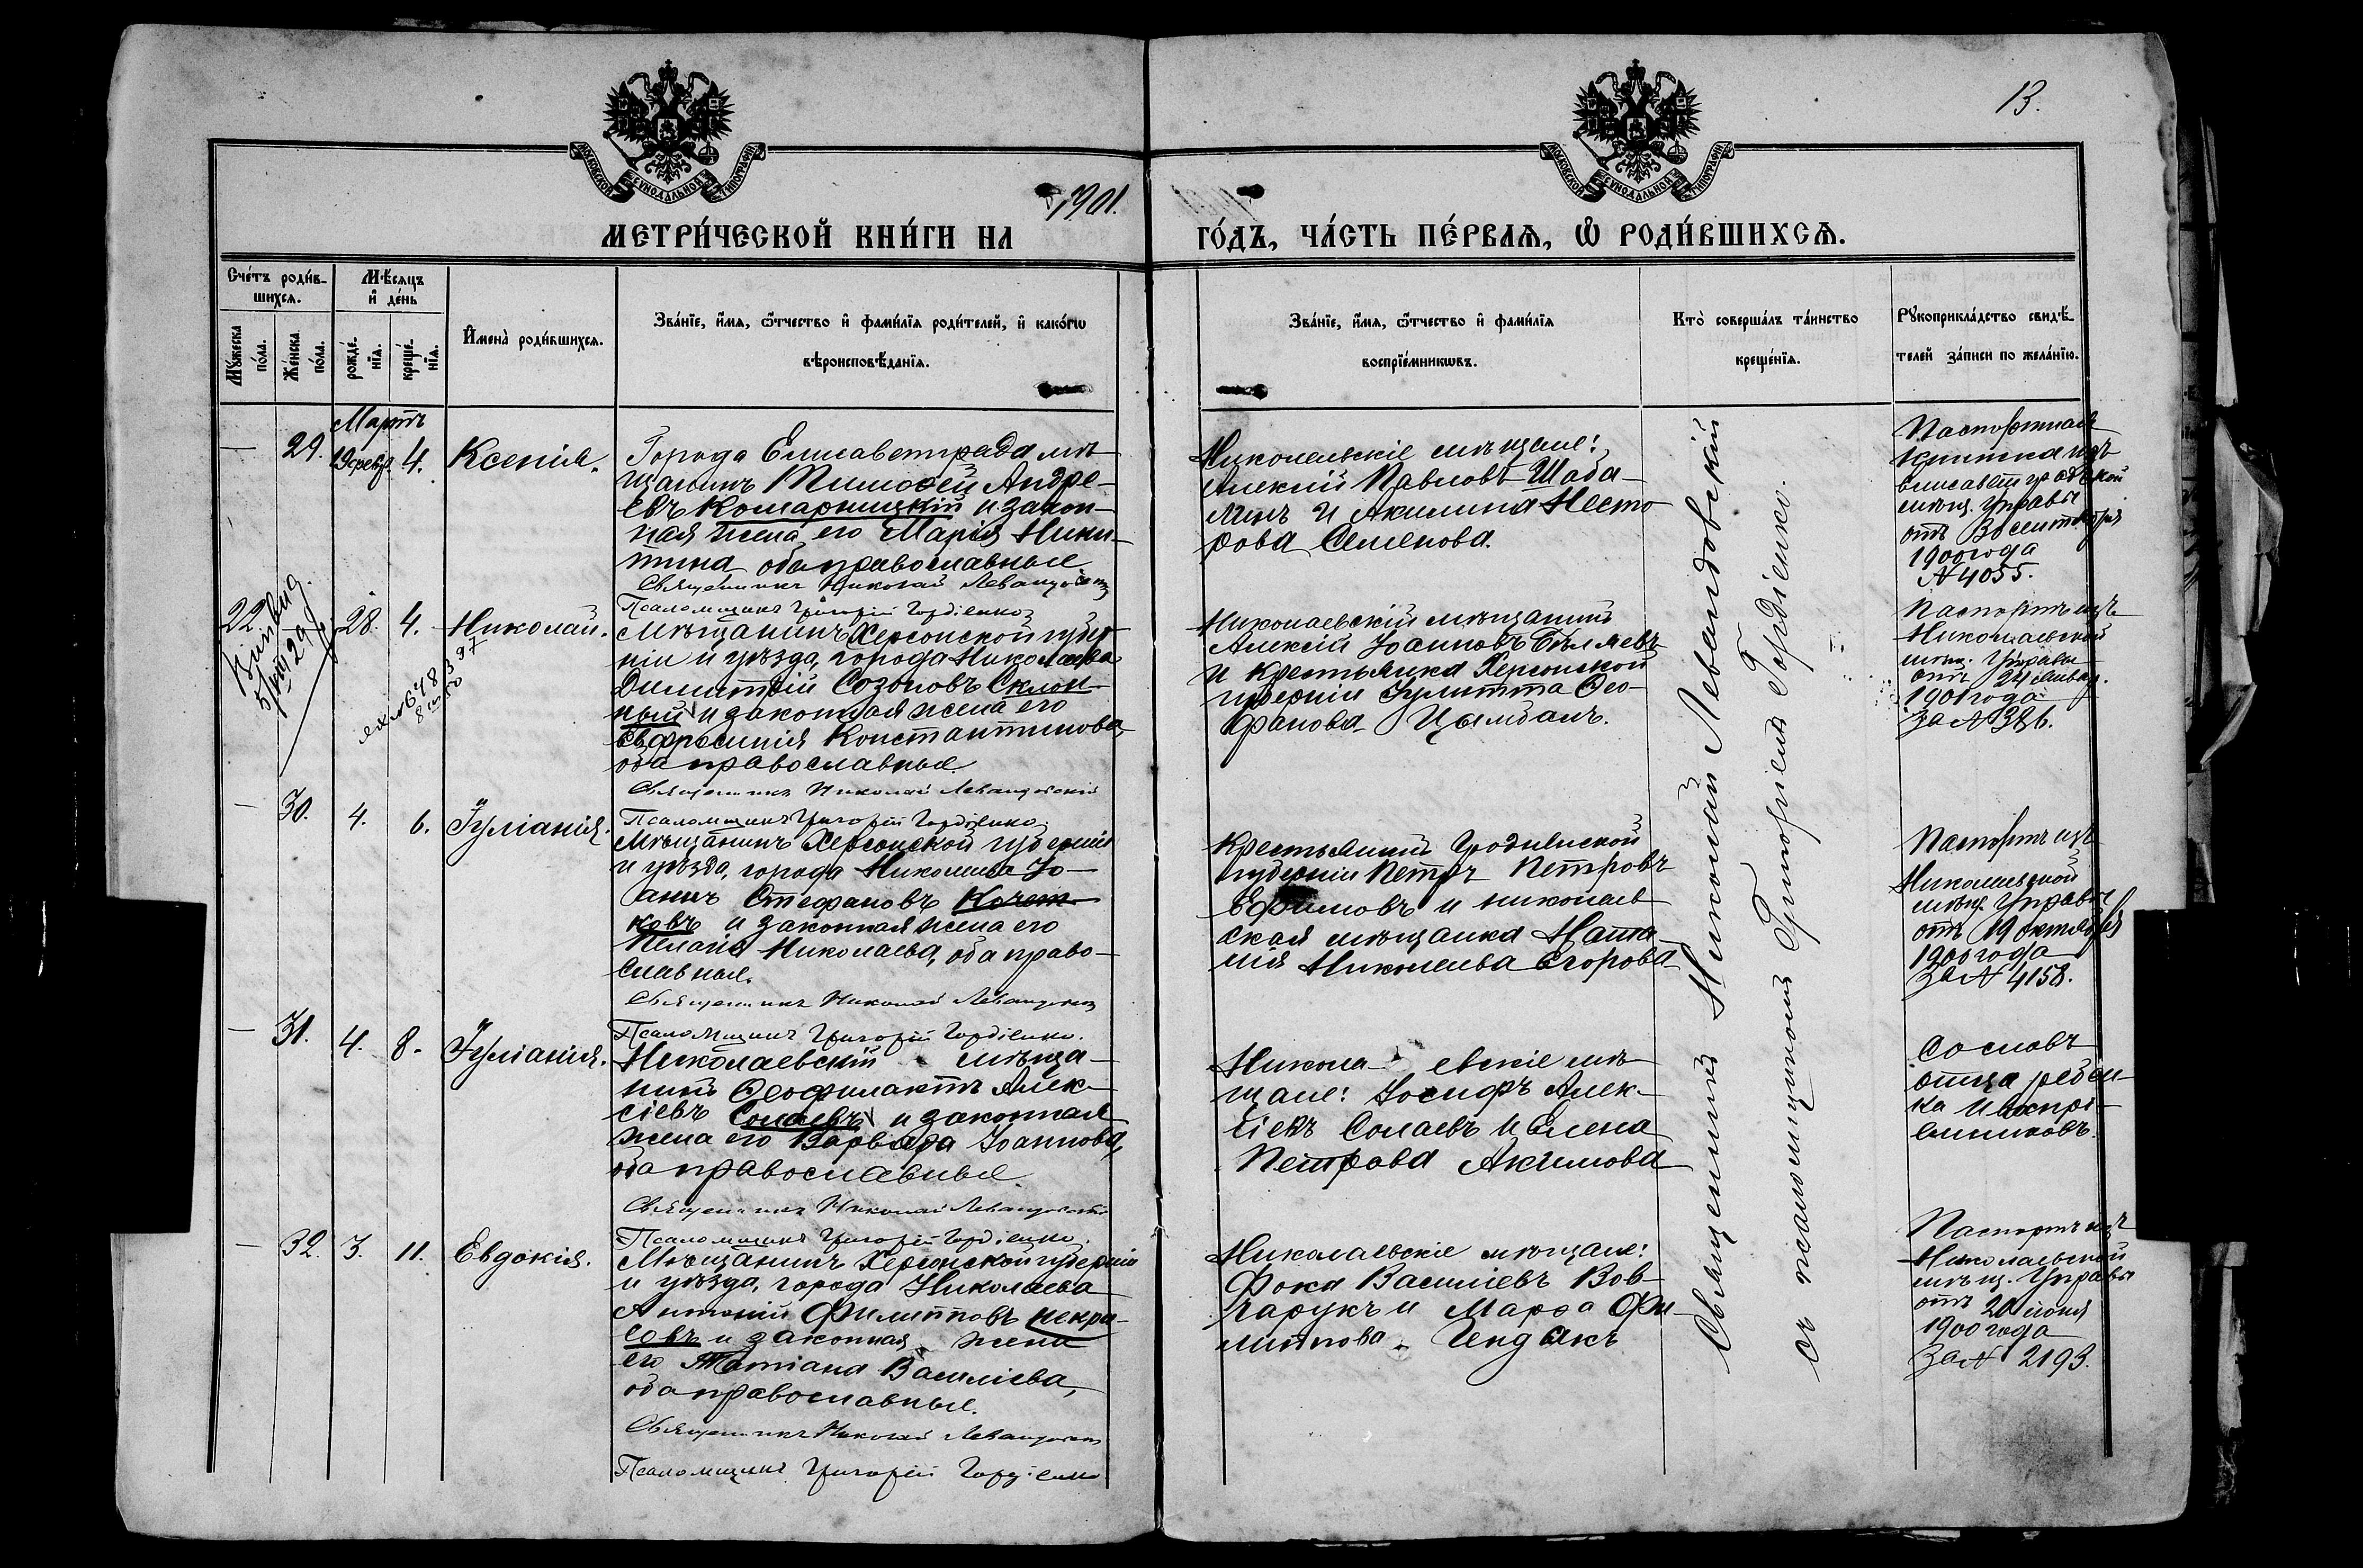 13.
МОСКОВСКОЙ СУНОДАЛЬНОЙ ТИПОГРАФІИ
МОСКОВСКОЙ СУНОДАЛЬНОЙ ТИПОГРАФІИ
МЕТРИ́ЧЕСКОЙ КНИ́ГИ НА 1901. ГО́ДЪ, ЧА́СТЬ ПЕ́РВАѦ, Ѽ РОДИ́ВШИХСѦ.
Сче́тъ роди́в-
шихсѧ.
Мꙋ́жеска
по́ла.
Же́нска
по́ла.
Мѣ́сѧцъ
и҆ де́нь
рожде́-
нїѧ.
креще́-
нїѧ.
И҆мена̀ роди́вшихсѧ.
Зва́нїе, и҆́мѧ, ѻ҆́тчество и҆ фами́лїѧ роди́телей, и҆ како́гѡ
вѣроисповѣ́данїѧ.
Зва́нїе, и҆́мѧ, ѻ҆́тчество и҆ фами́лїѧ
воспрїе́мникѡвъ.
Кто̀ соверша́лъ та́инство
креще́нїѧ.
Рꙋкоприкла́дство свидѣ́-
телей за́писи по жела́нїю.
Мартъ
— 29. 19 февр. 4. Ксенія.
Города Елисаветграда мѣ-
щанинъ Тимофей Андре-
евъ Комарницкій и закон-
ная жена его Марія Ники-
тина оба православные
Священникъ Николай Левандовскій
Псаломщикъ Григорій Гордіенко
Николаевскіе мѣщане:
Алексій Павловъ Шаба-
линъ и Акилина Несто-
рова Семенова.
Паспортная
книжка изъ
Елисаветградской
мѣщ. Управы
1900 года
№ 4055.
22 28. 4. Николай.
Мѣщанинъ Херсонской губер-
ніи и уѣзда, города Николаева
Димитрій Созоновъ Склон-
ный и законная жена его
Евфросинія Константинова
оба православные.
Священникъ Николай Левандовскій
Псаломщикъ Григорій Гордіенко
Николаевскій мѣщанинъ
Алексій Іоанновъ Бѣляевъ
и крестьянка Херсонской
губерніи Іулитта Ѳео-
фанова Цымбалъ.
Паспортъ изъ
Николаевской
мѣщ. Управы
отъ 24 январ.
1901 года
за № 326.
— 30. 4. 6. Іуліанія.
Мѣщанинъ Херсонской губерніи
и уѣзда, города Николаева Іо-
аннъ Стефановъ Кочет-
ковъ и законная жена его
Пелагія Николаева, оба право-
славные.
Священникъ Николай Левандовскій
Псаломщикъ Григорій Гордіенко.
Крестьянинъ Гродненской
губерніи Петръ Петровъ
Ефимовъ и николаев-
ская мѣщанка Ната-
лія Николаева Егорова
Паспортъ изъ
Николаевской
мѣщ. Управы
отъ 19 октября
1900 года
за № 4158.
— 31. 4. 8. Іуліанія.
Николаевскій мѣща-
нинъ Ѳеофилактъ Алек-
сіевъ Солаевъ и законная
жена его Варвара Іоаннова,
оба православные.
Священникъ Николай Левандовскій
Псаломщикъ Григорій Гордіенко.
Николаевскіе мѣ-
щане: Іосифъ Алек-
сіевъ Солаевъ и Елена
Петрова Акимова
Со словъ
отца ребен-
ка и воспрі-
емниковъ.
— 32. 3. 11. Евдокія.
Мѣщанинъ Херсонской губерніи
и уѣзда, города Николаева
Антоній Филипповъ Некра-
совъ и законная жена
его Татіана Василіева,
оба православные.
Священникъ Николай Левандовскій
Псаломщикъ Григорій Гордіенко
Николаевскіе мѣщане:
Фока Василіевъ Вов-
чарукъ и Марѳа Фи-
липпова Гендакъ
Паспортъ изъ
Николаевской
мѣщ. Управы
отъ 20 іюня
1900 года
за № 2193.
Священникъ Николай Левандовскій
съ псаломщикомъ Григоріемъ Гордіенко.